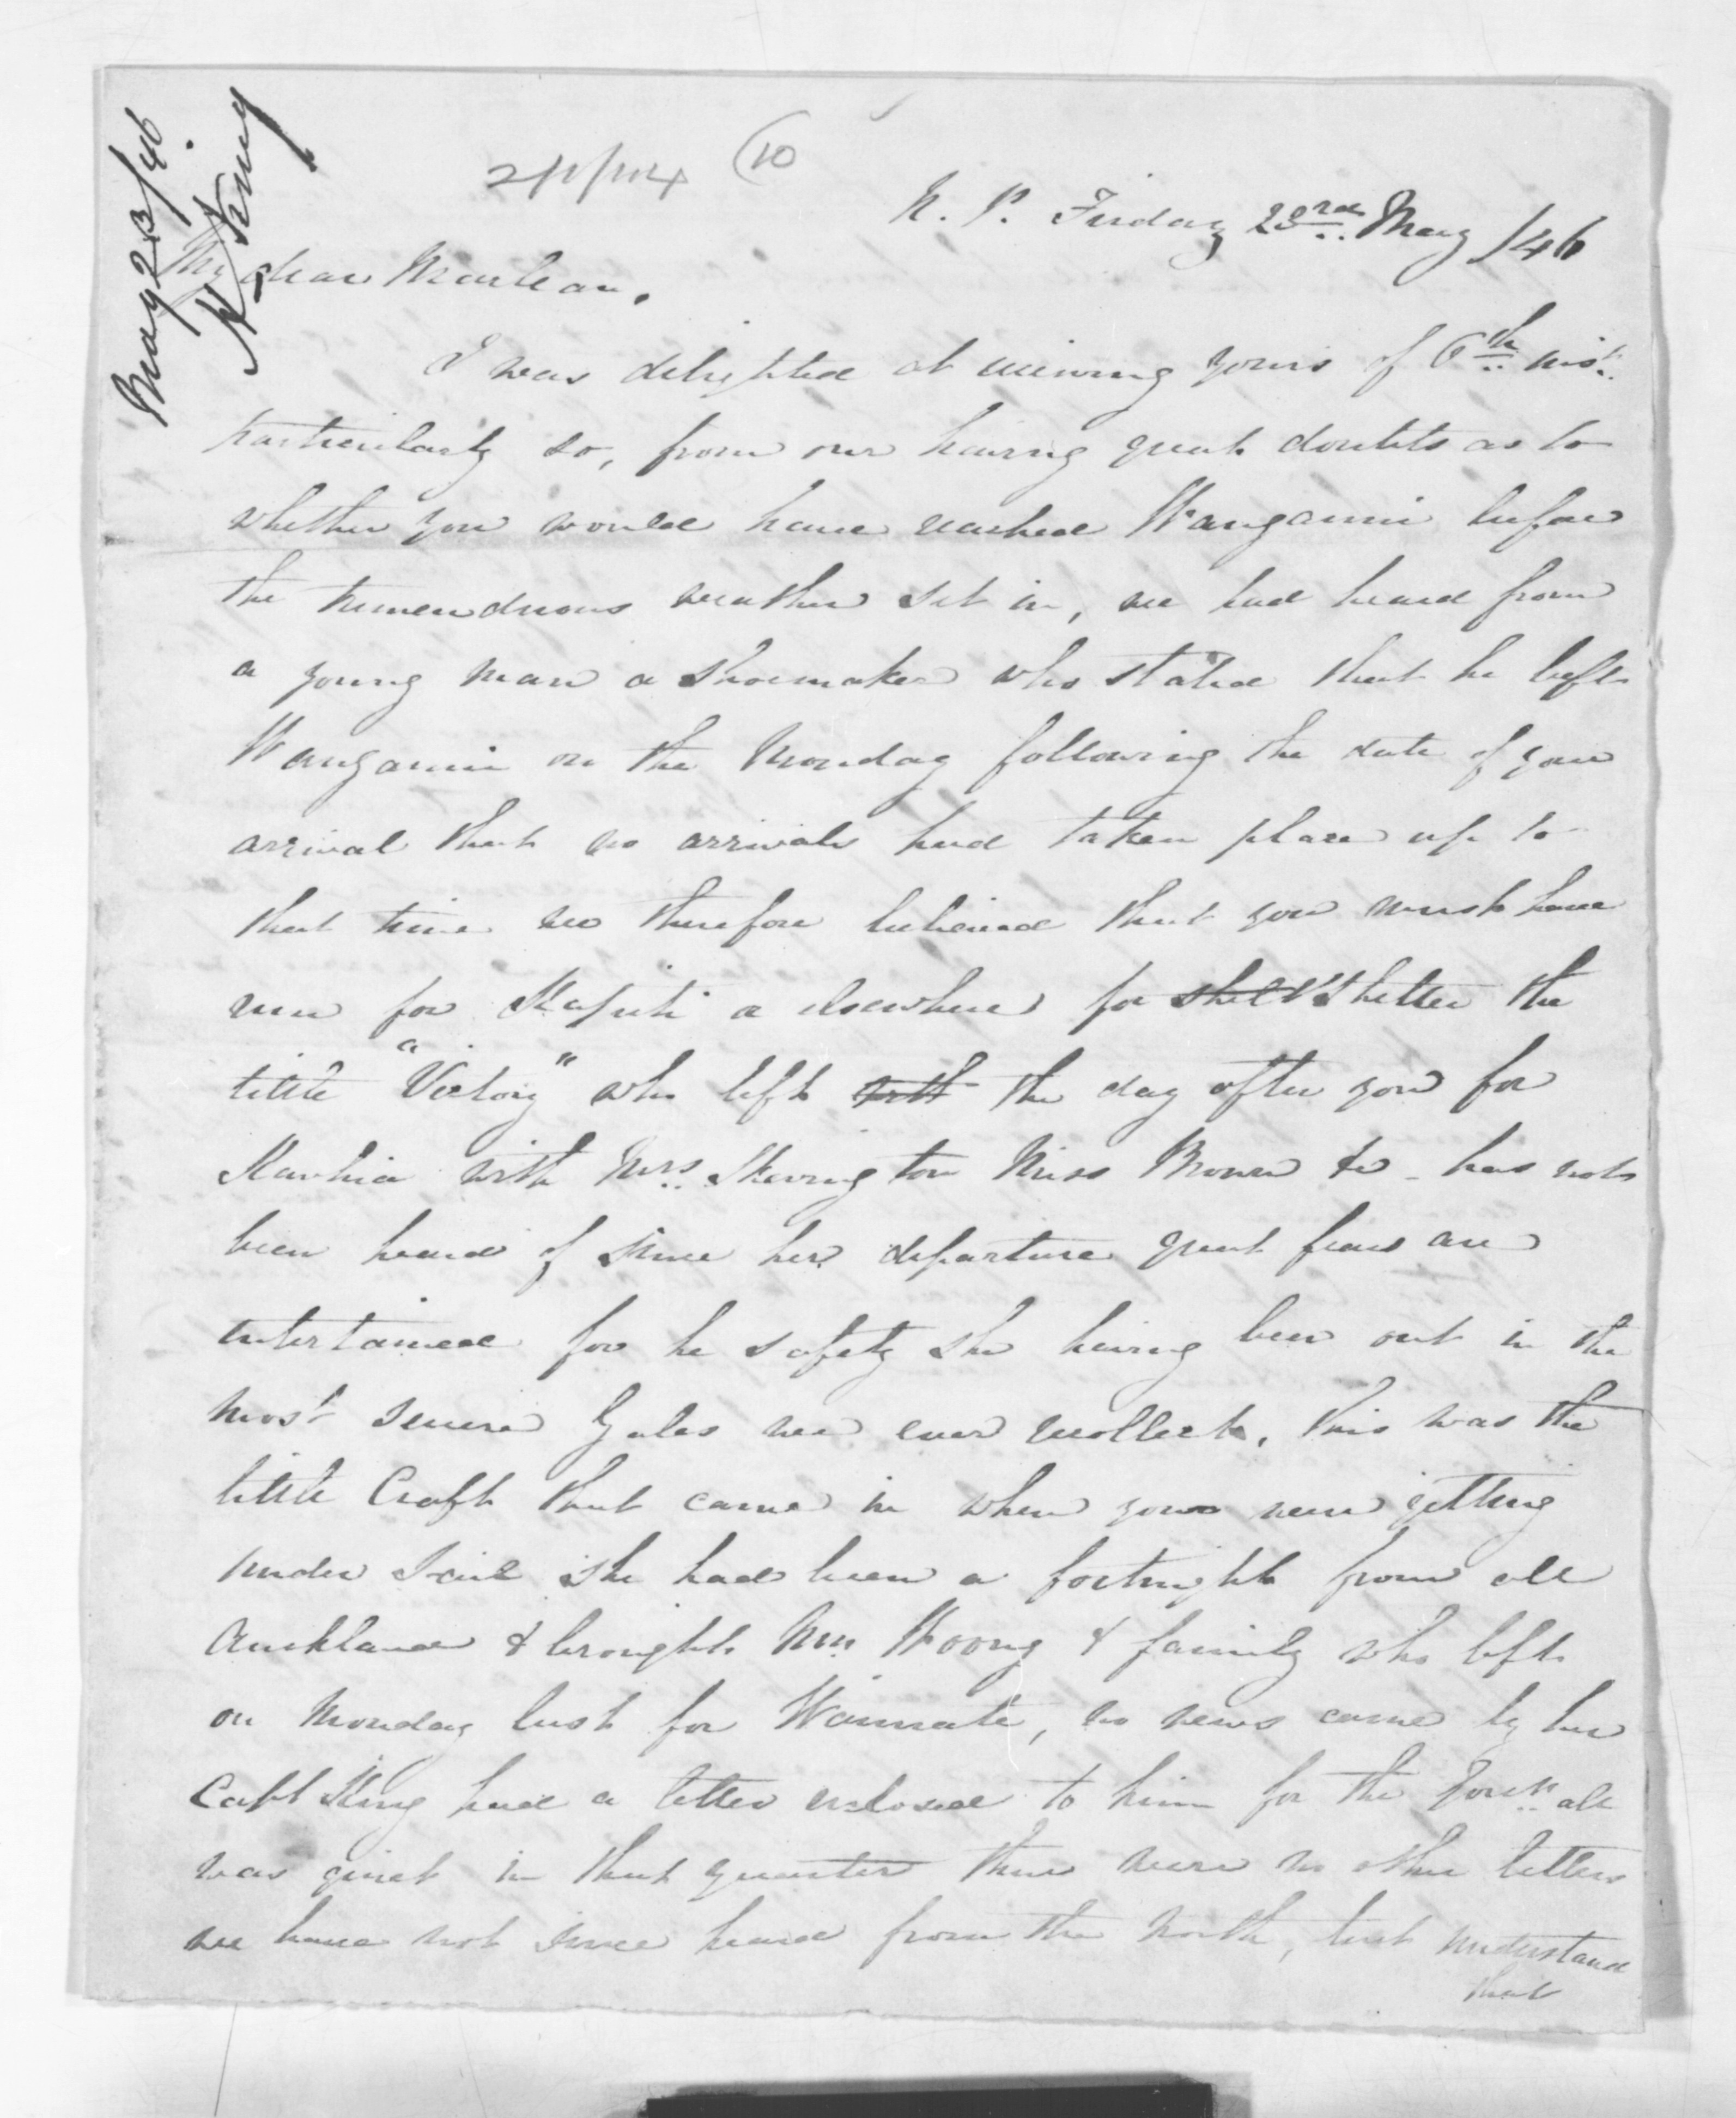 May 23/46.
H. King
2pp/104 (10
N. P. Friday 23rd.. May /46
My dear Maclean.
I was delighted at receiving yours of 6th inst.
particularly so, from our having great doubts as to
whether you would have reached Wanganui before
the tremendruous weather set in, we had heard from
a young man a shoemaker who stated that he left
Wanganui on the Monday following the date of your
arrival that no arrivals had taken place up to
that time we therefore believed that you must have
run for Kapiti or elsewhere for shel Shelter the
little "Victory" who left with the day after you for
Kawhia with Mrs. Skevington Miss Brown &c - has not
been heard of since her departure great fears are
entertained for he safety she having been out in the
most severe Gales we ever recollect, this was the
little Craft that came in when you were getting
under Sail She had been a fortnight from all
Auckland & brought Mr. & family who left
on Monday last for Waimate, no news came by her
Capt King had a letter enclosed to him for the all
was quiet in that quarter there were no other letters
we have not since heard from the North, but understand
that